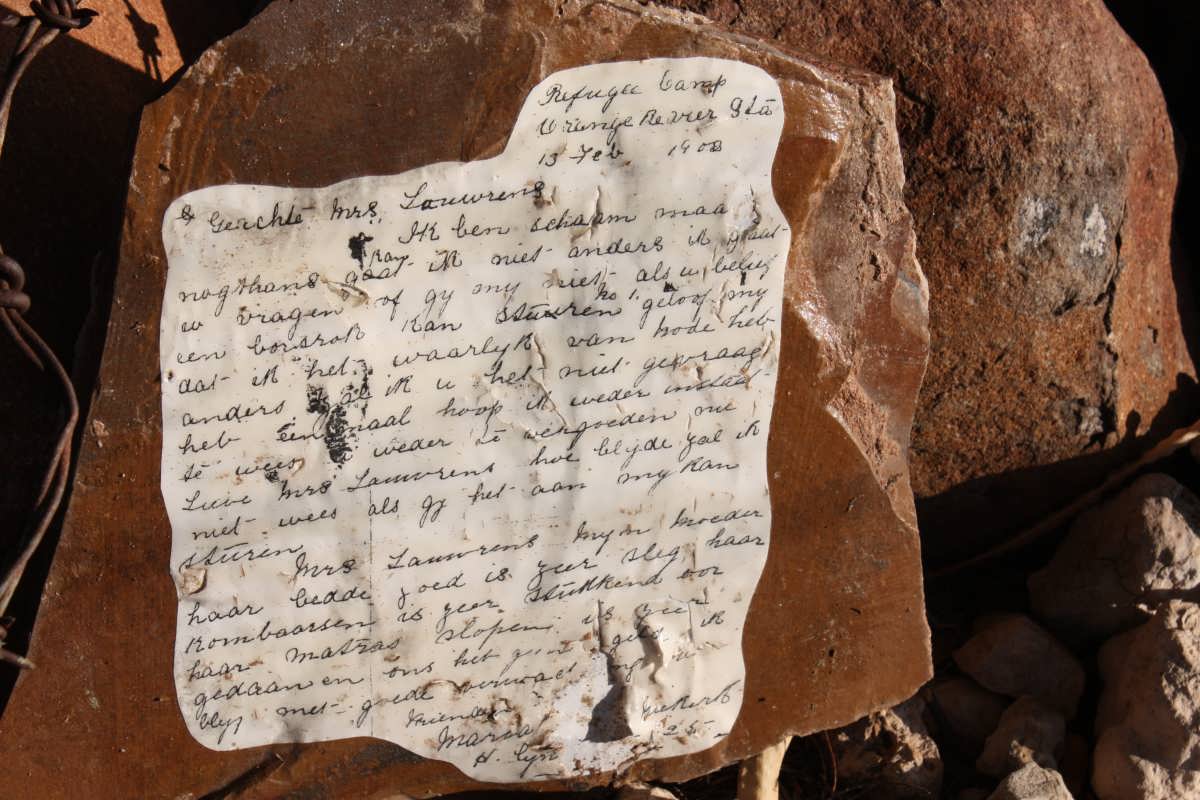 Refugee Camp
Orange Revier Stā
13 Feb 1903
Geachte Mrs. Louwrens
Ik ben schaam maa
nogthans kan ik niet anders ik
u vragen of gy my niet als u
een borsrok kan stuuren geloof my
dat ik het waarlyk van node heb
anders ik u het niet gevraag
heb eenmaal hoop ik weder instaat
te wees u weder te vergoeden nu
Lieve Mrs Louwrens hoe blyde zal ik
niet wees als gy het aan my kan
sturen
Mrs Louwrens Myn Moeder
haar bedde goed is zeer sleg haar
Kombaarsen is zeer stukkend
haar matras slopen is zeer
gedaan en ons het geen geld ik
blyf met
Maria
H. Lyn 25